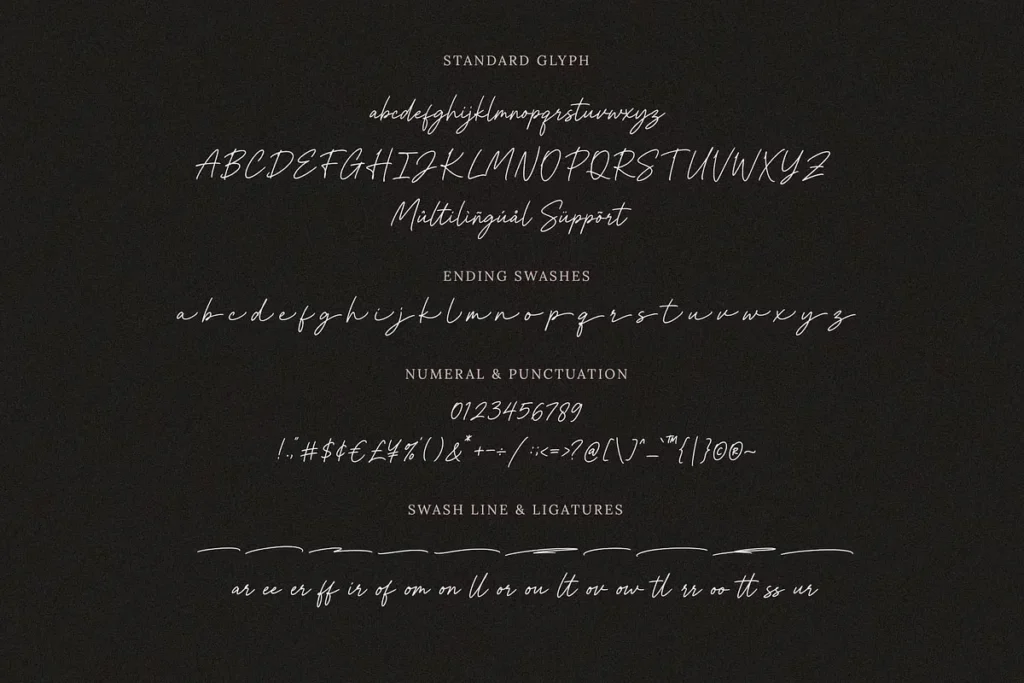 STANDARD GLYPH
abcdefghijklmnopqrstuvwxyz
ABCDEFGHIJKLMNOPQRSTUVWXYZ
Műltiliñgúål Süppőrt
ENDING SWASHES
a b c d e f g h i j k l m n o p q r s t u v w x y z
NUMERAL & PUNCTUATION
0123456789
!.,"#$¢€£¥%'()&*+-÷/:;<=>?@[\]^_`™{|}©®~
SWASH LINE & LIGATURES
ar ee er ff ir of om on ll or ou lt ov ow tl rr oo tt ss ur